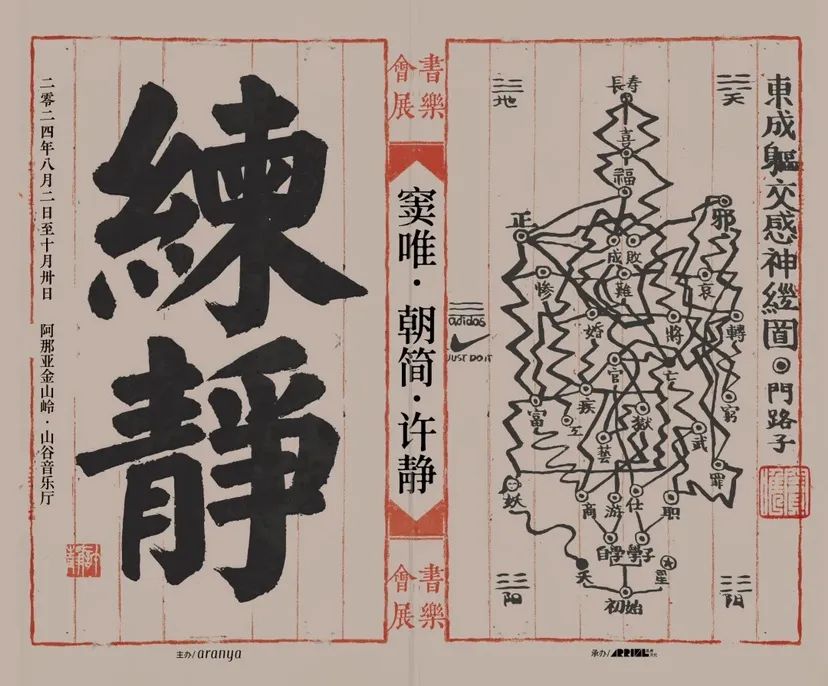 東成軀交感神經圖⊙門路子
三天
三地
長寿
喜
福
正
邪
成 敗
惨
難
哀
婚
將
轉
官
亡
富
疾
獄
窮
工
藝
武
罪
妖
商
游
仕
职
自學
學子
夭
星
初始
三阳
三阴
adidas
JUST DO IT
書樂
會展
窦唯·朝简·许静
書樂
會展
練靜
二零二四年八月二日至十月卅日 阿那亚金山岭·山谷音乐厅
主办/aranya
承办/